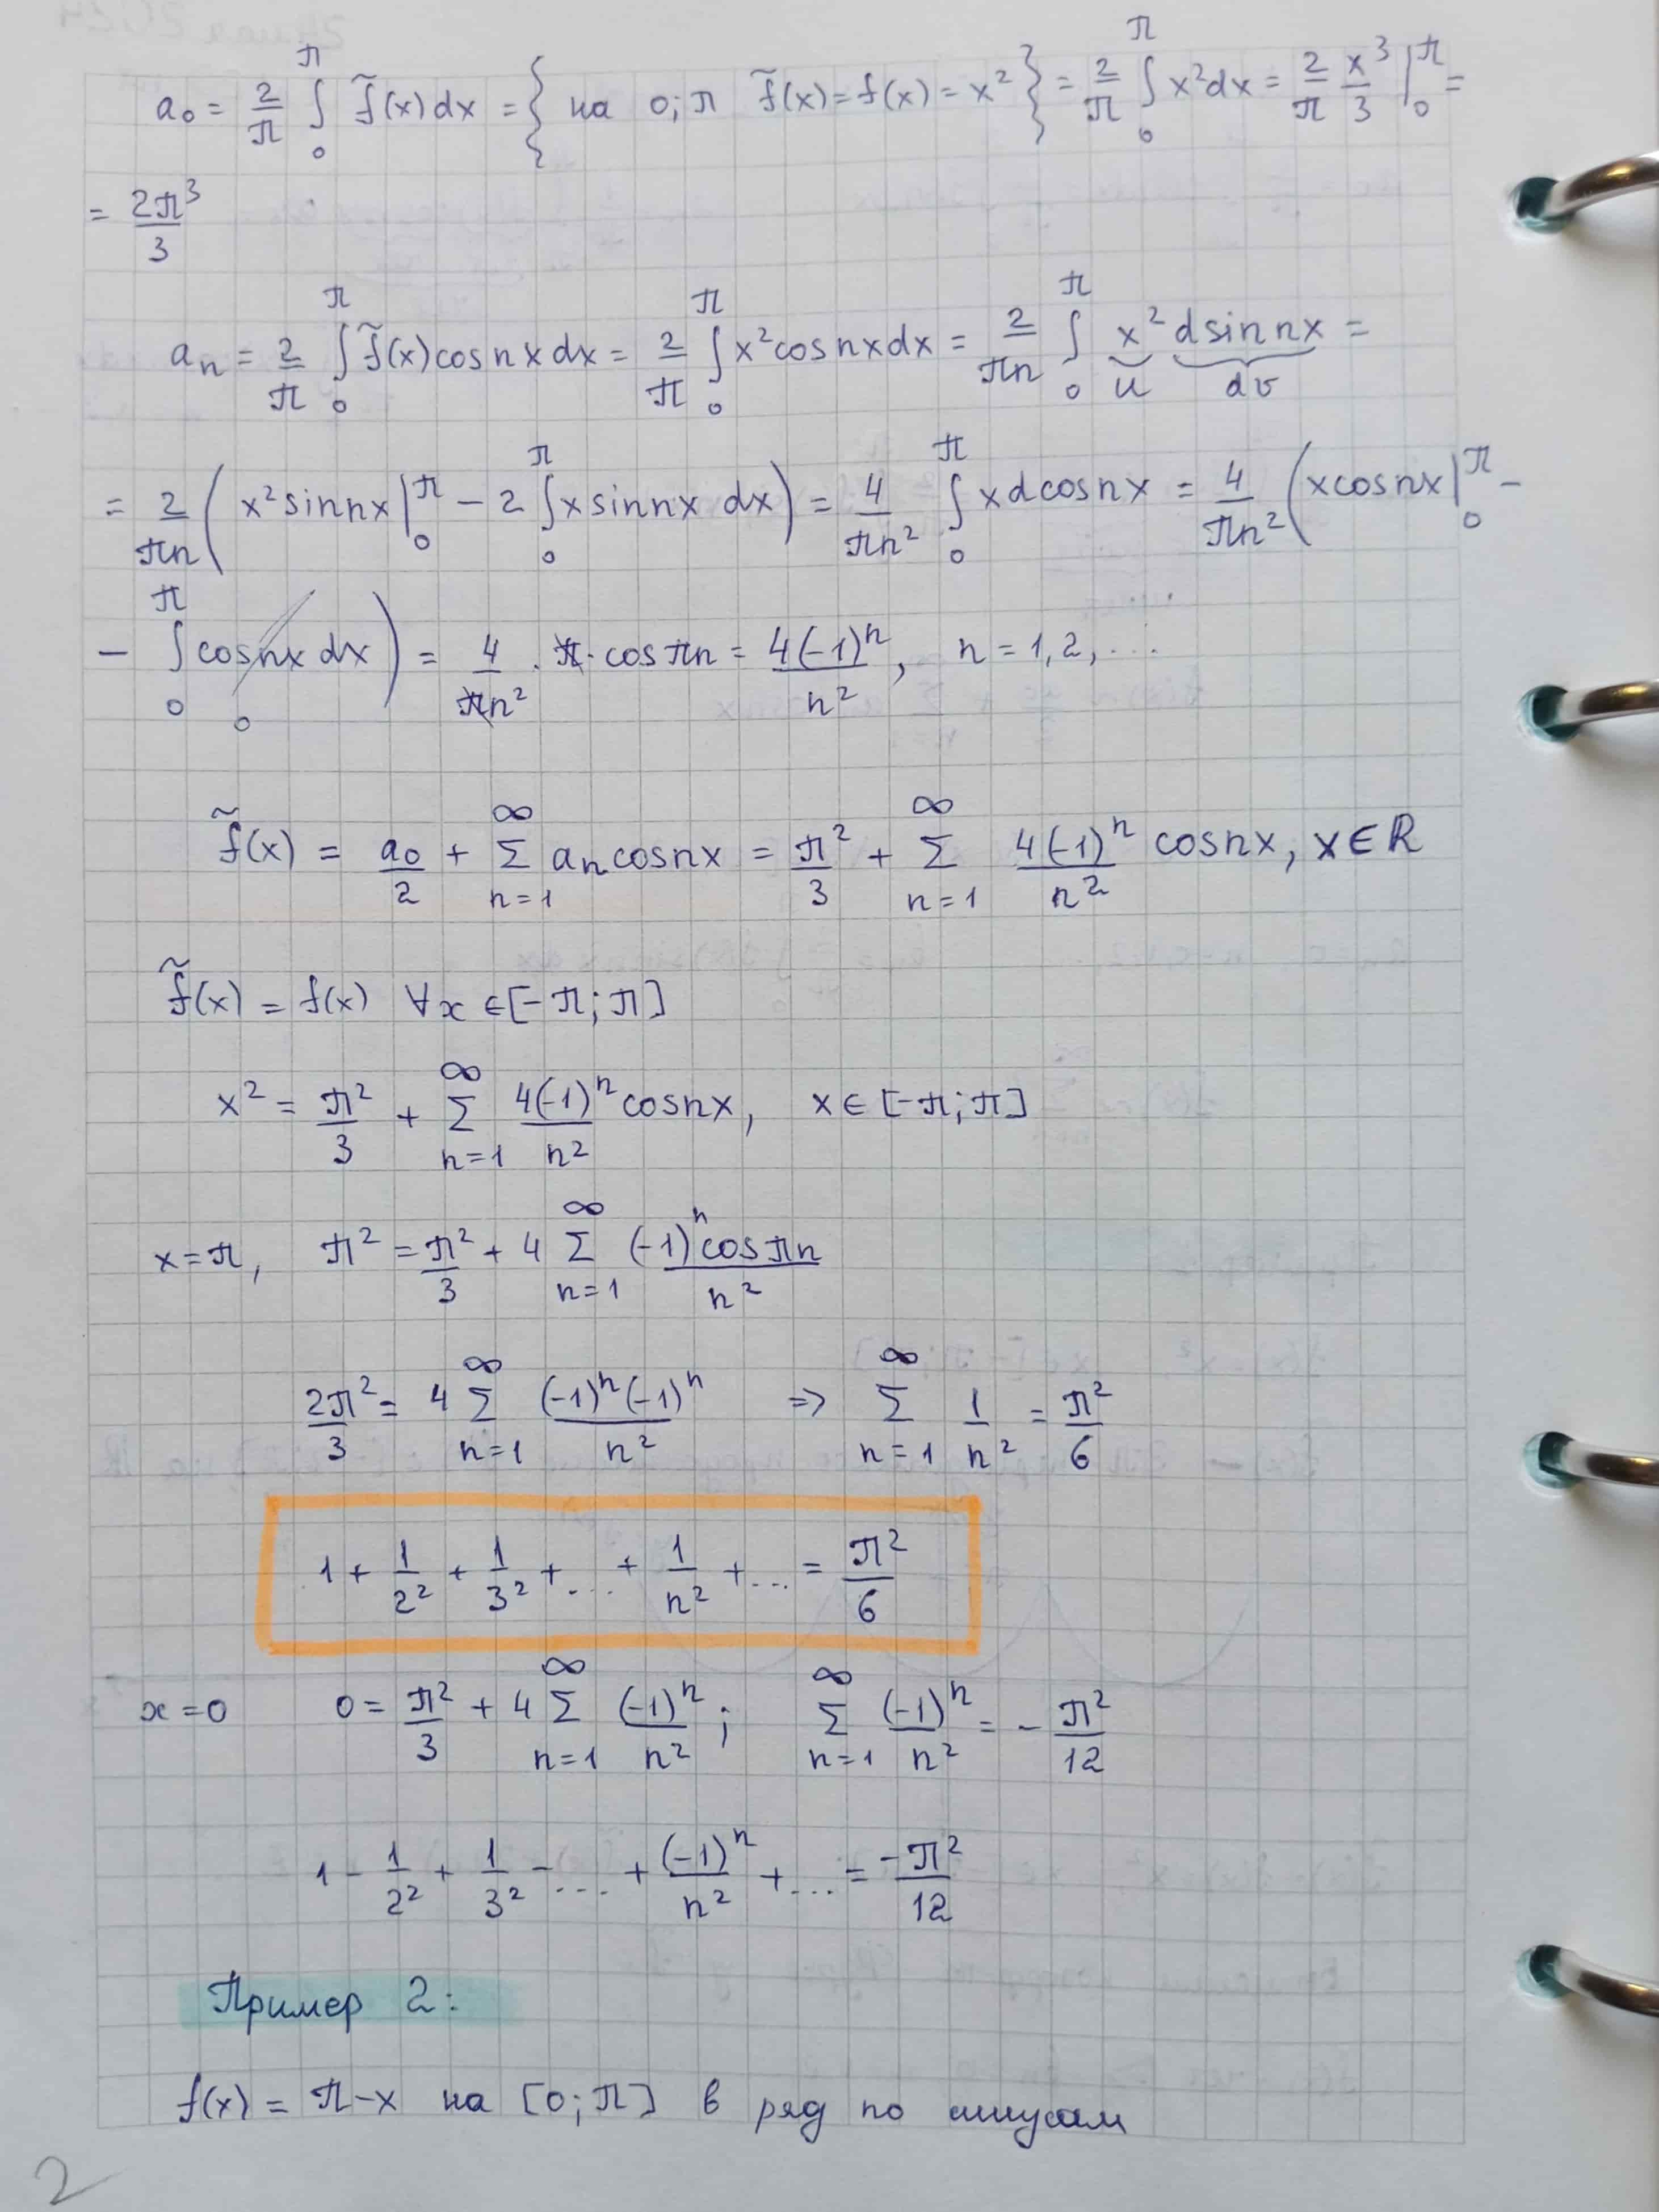 a₀ = 2/π ∫₀^π f̃(x)dx = { на 0;π f̃(x) = f(x) = x² } = 2/π ∫₀^π x²dx = 2/π x³/3 |₀^π =
= 2π³/3
aₙ = 2/π ∫₀^π f̃(x)cos nx dx = 2/π ∫₀^π x²cos nx dx = 2/πn ∫₀^π x² d sin nx =
u dv
= 2/πn ( x² sin nx |₀^π − 2 ∫₀^π x sin nx dx ) = 4/πn² ∫₀^π x d cos nx = 4/πn² ( x cos nx |₀^π −
− ∫₀^π cos nx dx ) = 4/πn² · π · cos πn = 4(-1)ⁿ/n², n = 1,2,...
0
f̃(x) = a₀/2 + Σ_{n=1}^∞ aₙ cos nx = π²/3 + Σ_{n=1}^∞ 4(-1)ⁿ/n² cos nx, x ∈ R
f̃(x) = f(x) ∀x ∈ [-π; π]
x² = π²/3 + Σ_{n=1}^∞ 4(-1)ⁿ/n² cos nx, x ∈ [-π; π]
x = π, π² = π²/3 + 4 Σ_{n=1}^∞ (-1)ⁿ cos πn/n²
2π²/3 = 4 Σ_{n=1}^∞ (-1)ⁿ(-1)ⁿ/n² ⇒ Σ_{n=1}^∞ 1/n² = π²/6
1 + 1/2² + 1/3² + ... + 1/n² + ... = π²/6
x = 0 0 = π²/3 + 4 Σ_{n=1}^∞ (-1)ⁿ/n² ; Σ_{n=1}^∞ (-1)ⁿ/n² = - π²/12
1 - 1/2² + 1/3² - ... + (-1)ⁿ/n² + ... = -π²/12
Пример 2:
f(x) = π-x на [0; π] в ряд по синусам
2